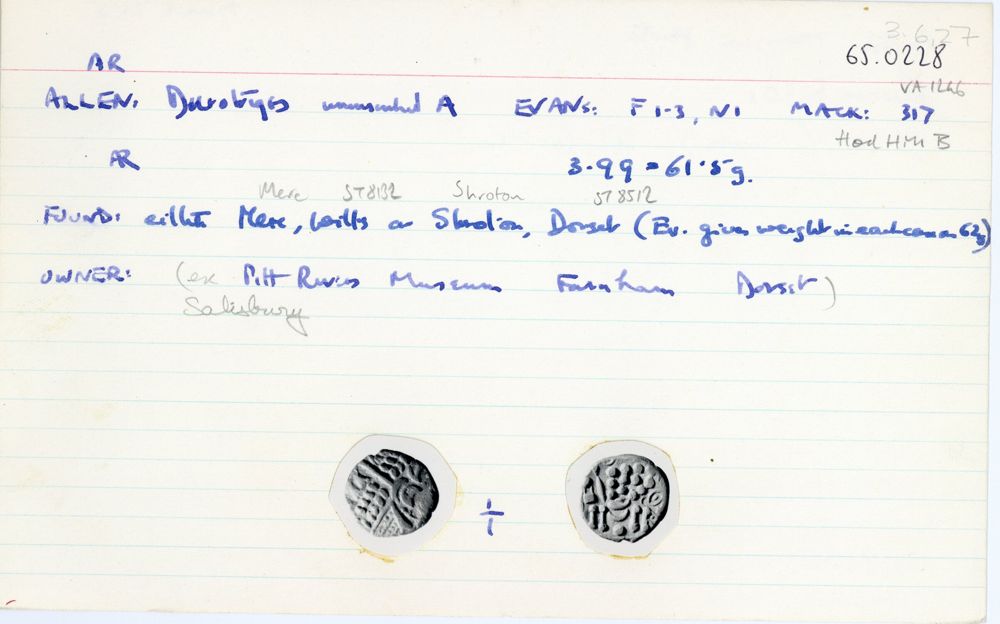 3.6.27
AR
65.0228
VA 1246
ALLEN: Durotriges uninscribed A EVANS: F 1-3, N1 MACK: 317
Hod Hill B
AR
3.99 = 61.5g.
Mere ST8132 Shroton ST8512
FOUND: either Mere, Wilts or Shroton, Dorset (Ev. gives weight in each case as 62g)
OWNER: (ex Pitt Rivers Museum Farnham Dorset)
Salisbury
1/1